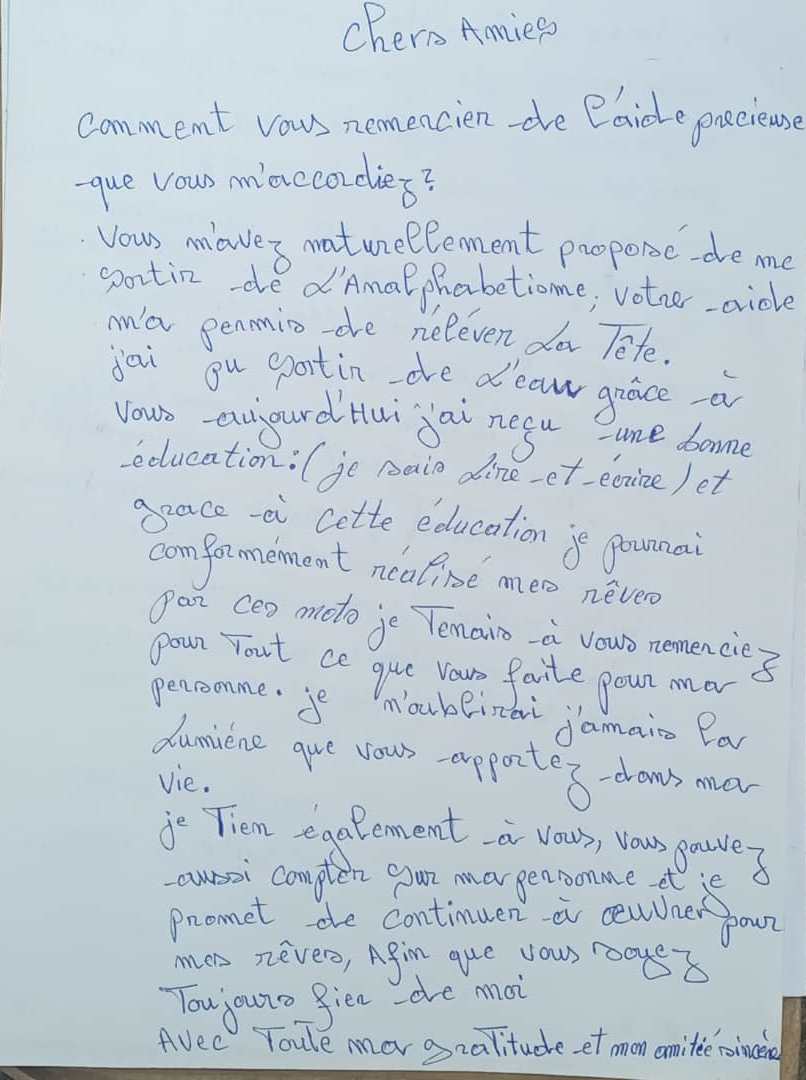 Chers Amies
Comment vous remercier de l'aide precieuse
que vous m'accordiez?
Vous m'avez naturellement proposé de me
sortir de L'Analphabetisme, votre aide
m'a permis de réléver La Tête.
j'ai pu sortir de L'eau grâce à
vous aujourd'Hui j'ai reçu une bonne
éducation: (je sais Lire et écrire) et
grace à cette éducation je pourrai
conformément réalisé mes rêves
par ces mots je Tenais à vous remerciez
pour Tout ce que vous faite pour ma
personne. je n'oublirai j'amais la
Lumiére que vous apportez dans ma
vie.
je Tien également à vous, vous pouvez
aussi compter sur ma personne et je
promet de continuer à œuvrer pour
mes rêves, Afin que vous soyez
Toujours fier de moi
Avec Toute ma gratitude et mon amitéé sincére